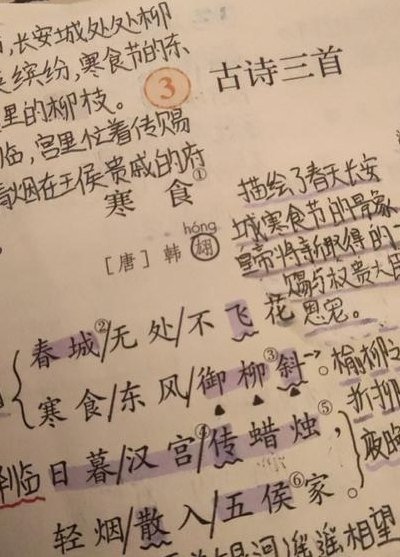 长安城处处柳
缤纷,寒食节的东
里的柳枝。
临,宫里忙着传赐
烟在王侯贵戚的府
3 古诗三首
寒食①
hóng
[唐]韩翃
描绘了春天长安
城寒食节的景象
皇帝将新取得的
赐与权贵大臣
恩宠。
春城②/无处/不飞花
寒食/东风/御柳③斜→。榆柳之
折柳
临日暮/汉宫④/传蜡烛⑤,
夜晚
轻烟/散入/五侯⑥家。
遥遥相望